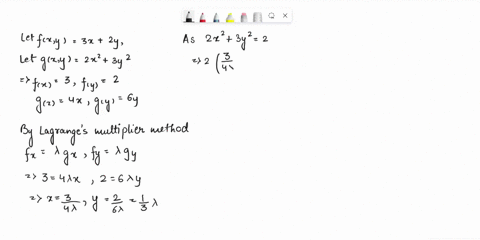 Let f(x,y) = 3x + 2y,
Let g(x,y) = 2x² + 3y²
=> f(x) = 3, f(y) = 2
g(x) = 4x, g(y) = 6y
By Lagrange's multiplier method
fx = λ gx, fy = λ gy
=> 3 = 4λx, 2 = 6λy
=> x = 3/4λ, y = 2/6λ = 1/3 λ
As 2x² + 3y² = 2
=> 2 (3/4λ